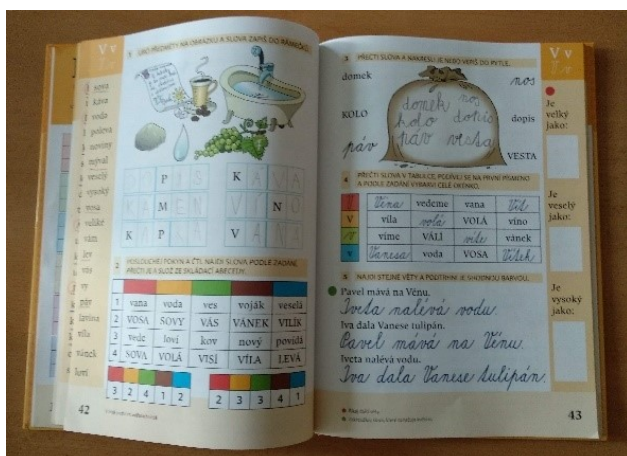 V v
sova
káva
voda
polova
noviny
mýval
veselý
vysoký
vosa
veliké
vám
lev
vás
vy
páv
lavina
víla
vánek
loví
42
1 URČI PŘEDMĚTY NA OBRÁZKU A SLOVA ZAPIŠ DO RÁMEČKŮ.
DOPIS
KAMEN
KAP
KAVA
VÍNO
VANA
2 POSLOUCHEJ POKYN A ČTI. NAJDI SLOVA PODLE ZADÁNÍ,
PŘEČTI JE A SLOŽ ZE SKLÁDACÍ ABECEDY.
1 vana voda ves voják veselá
2 VOSA SOVY VÁS VÁNEK VILÍK
3 vede loví kov nový povídá
4 SOVA VOLÁ VISÍ VÍLA LEVÁ
3 2 4 1 2
2 3 3 4 1
3 PŘEČTI SLOVA A NAKRESLI JE NEBO VEPIŠ DO PYTLE.
domek
nos
KOLO
dopis
páv
VESTA
domek nos
kolo dopis
páv vesta
4 PŘEČTI SLOVA V TABULCE, PODÍVEJ SE NA PRVNÍ PÍSMENO
A PODLE ZADÁNÍ VYBARVI CELÉ OKÉNKO.
V Věna vedeme vana Vít
V víla volá VOLÁ víno
v víme VÁLÍ víte vánek
v Vanesa voda VOSA Vítek
5 NAJDI STEJNÉ VĚTY A PODTRHNI JE SHODNOU BARVOU.
Pavel mává na Věnu.
Iveta nalévá vodu.
Iva dala Vanese tulipán.
Pavel mává na Věnu.
Iveta nalévá vodu.
Iva dala Vanese tulipán.
V v
V v
Je
velký
jako:
Je
veselý
jako:
Je
vysoký
jako:
43